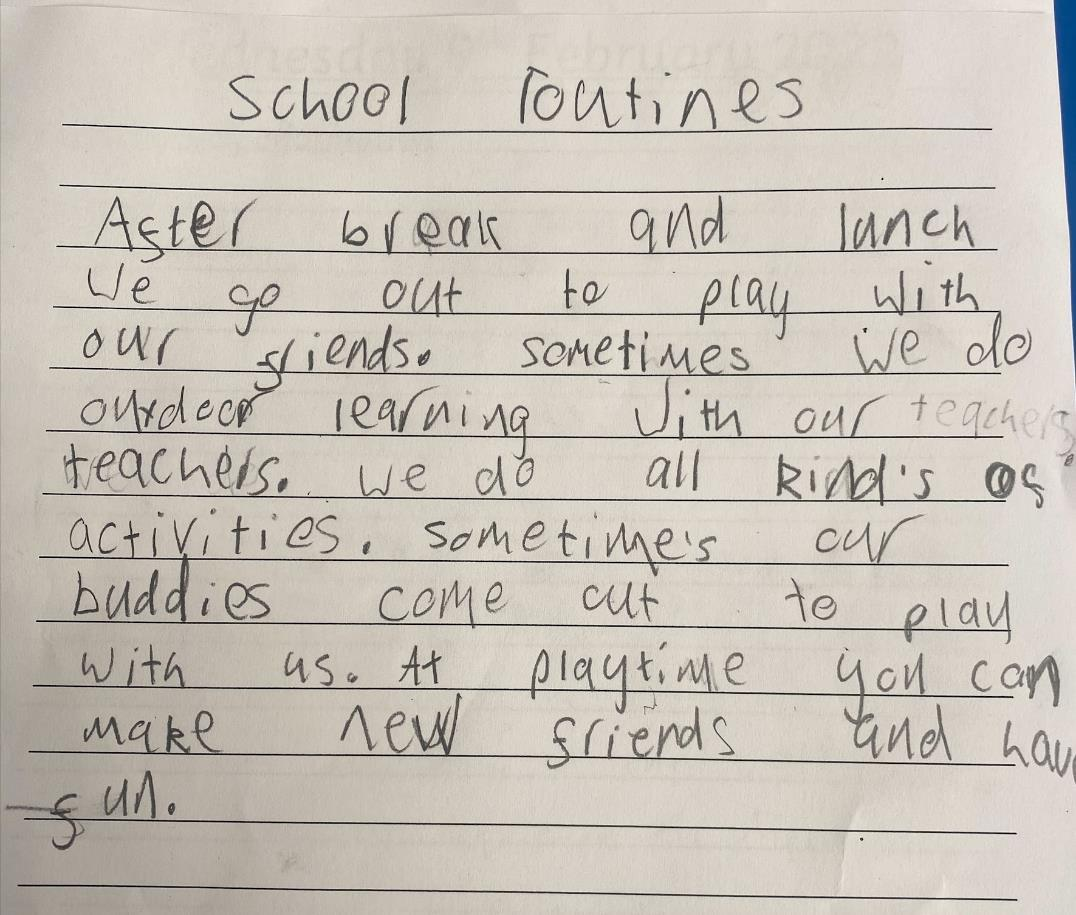 School routines
After break and lunch
We go out to play with
our friends. sometimes we do
outdoor learning with our teachers.
teachers. we do all kind's of
activities. sometime's our
buddies come out to play
with us. At playtime you can
make new friends and have
fun.